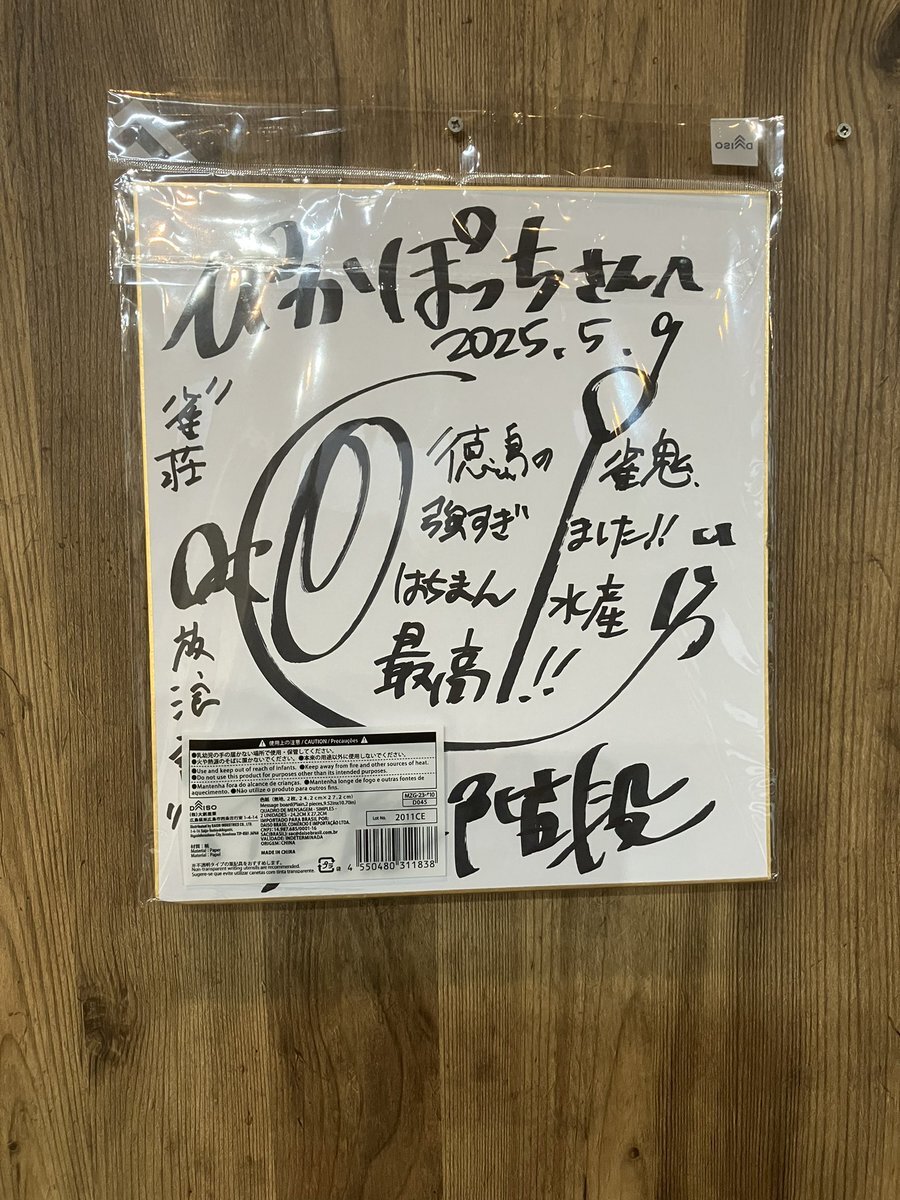 DAISO
ぴかぽっちさんへ
2025.5.9
雀荘
放浪
徳島の雀鬼、
強すぎました!!
はちまん水産
最高!!
階段
使用上の注意 / CAUTION / Precauções
●乳幼児の手の届かない場所で使用・保管してください。
●火や熱源のそばに置かないでください。●本来の用途以外に使用しないでください。
●Use and keep out of reach of infants. ●Keep away from fire and other sources of heat.
●Do not use this product for purposes other than its intended purposes.
●Mantenha fora do alcance de crianças. ●Mantenha longe de fogo e outras fontes de
aquecimento. ●Não utilize o produto para outros fins.
DAISO
(株)大創産業
広島県東広島市西条吉行東1-4-14
材質:紙
Material : Paper
Material : Papel
色紙(無地、2枚、24.2cm×27.2cm)
Message board(Plain,2 pieces,9.52inx10.70in)
QUADRO DE MENSAGEM - SIMPLES -
2 UNIDADES - 24,2CM X 27,2CM
IMPORTADO PARA BRASIL POR:
DAISO BRASIL COMÉRCIO E IMPORTAÇÃO LTDA.
CNPJ: 14.987.685/0001-16
SAC(BRASIL): sac@daisobrasil.com.br
VALIDADE: INDETERMINADA
ORIGEM: CHINA
MADE IN CHINA
MZG-23-*10
D045
Lot No. 2011CE
※不透明タイプの筆記具をおすすめします。
Non-transparent writing utensils are recommended.
Sugere-se que evite utilizar canetas com tinta transparente.
袋
4 550480 311838